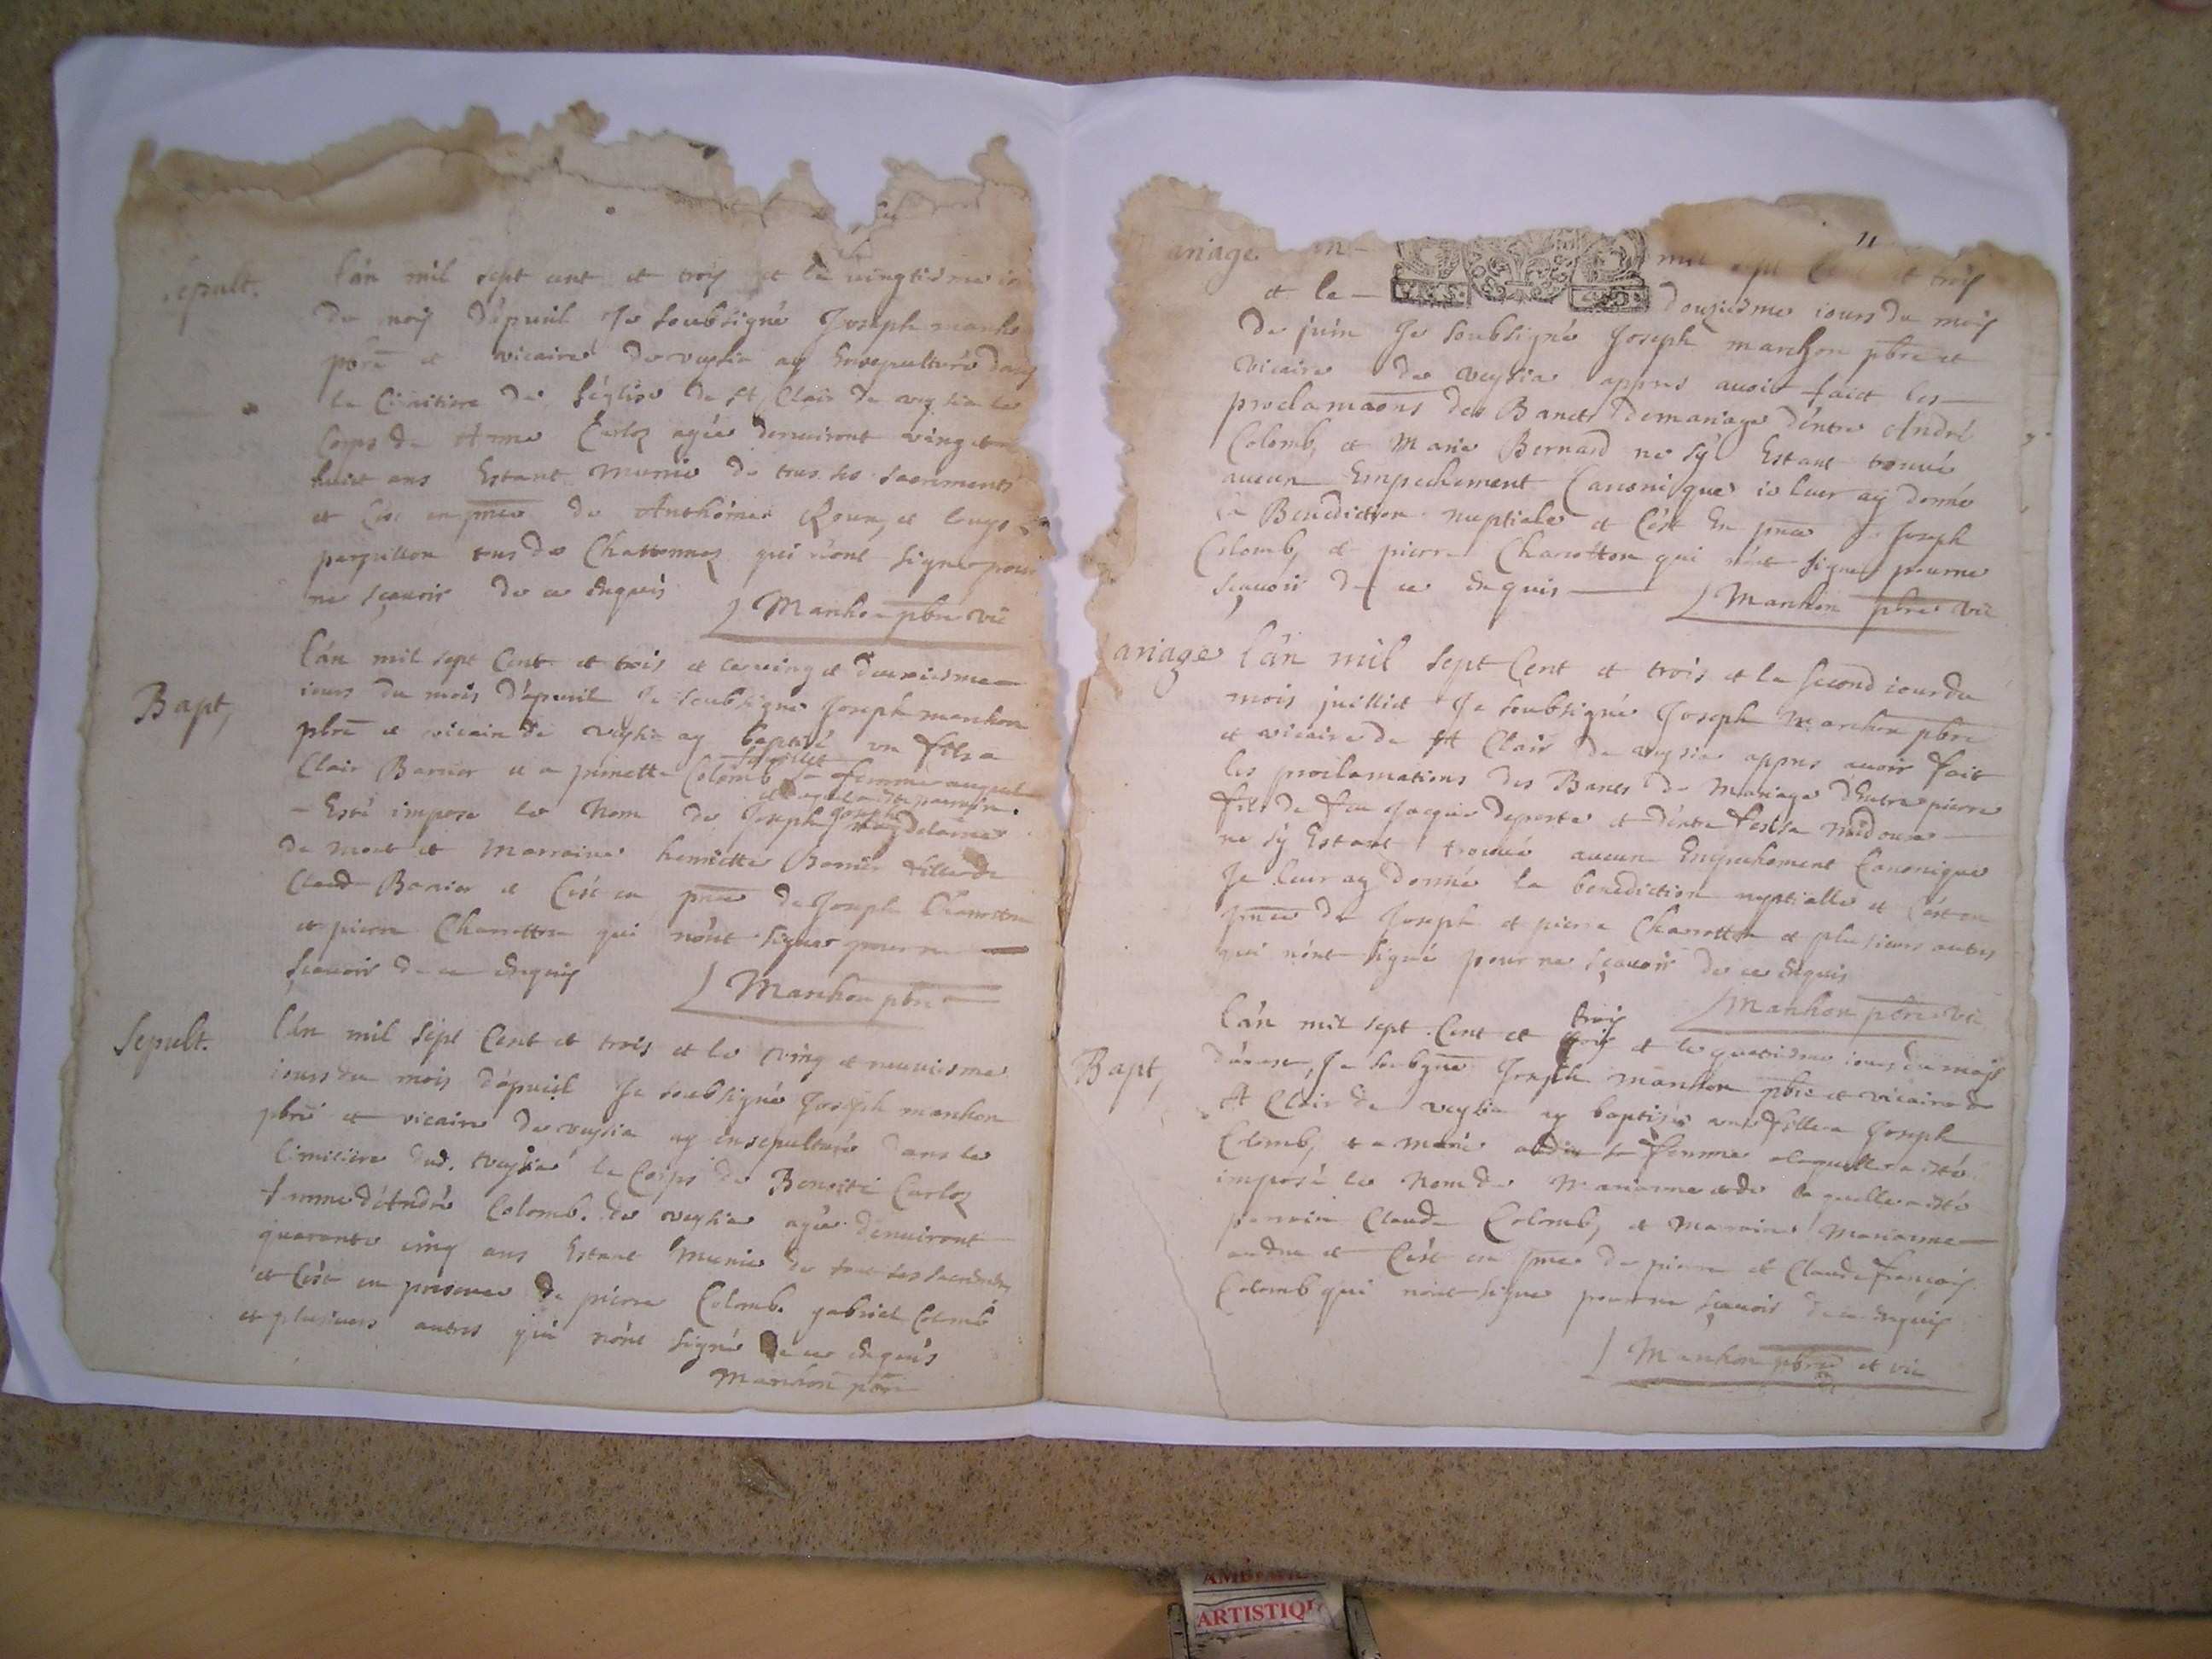 Sepult.
l'án mil sept cent et trois et le vingtiesme
du mois d'apvril Je soubsigné Joseph manho
pbre et vicaire de veyssia ay ensepulturé dans
le Cimitiere de l'église de st Clair de veyssia le
Corps de Anne Carloz agée denviront ving et
huict ans Estant munie de tous les sacrements
et C'est en pnce de Anthoine et
tus de Chattonnaz qui n'ont signer pour
ne sçavoir de ce enquis
Manhon pbre vic
Bapt,
l'án mil sept Cent et trois et le ving et deuxiesme
iours du mois d'apvril Je soubsigné Joseph manhon
pbre et vicaire de veyssia ay baptisé un fils a
Clair Barrier et a pernette Colomb sa femme auquel
Esté imposé le Nom de Joseph
parrain Joseph
de et Marraine henriette Barrier fille de
Claude Barrier et C'est en pnce de Joseph Charrotton
et pierre Charrotton qui n'ont signer pour ne
sçavoir de ce enquis
Manhon pbre
Sepult.
l'án mil sept Cent et trois et le ving et neuviesme
iours du mois d'apvril Je soubsigné Joseph manhon
pbre et vicaire de veyssia ay ensepulturé dans le
Cimitiere dud. veyssia le Corps de Benoite Carloz
femme d'André Colomb. de veyssia agée denviront
quarante cinq ans Estant munie de tout les sacréments
et C'est en presence de pierre Colomb. gabriel Colomb
et plusieurs autres qui n'ont signé de ce enquis
Manhon pbre
11
ariage
mil sept Cent et trois
et le douziesme iours du mois
de juin Je soubsigné Joseph manhon pbre et
vicaire de veyssia appres avoir faict les
proclamaons des Bancts de mariage d'éntre André
Colomb, et Marie Bernard ne s'y Estant trouvé
aucun Empechement Canonique ie leur ay donné
la Benediction nuptiale et C'ést En pnce de Joseph
Colomb, et pierre Charrotton qui n'ont signer pour ne
sçavoir de ce enquis
Manhon pbre vic
ariage
l'án mil sept Cent et trois et le second iour du
mois juilliet Je soubsigné Joseph Manhon pbre
et vicaire de st Clair de veyssia appres avoir fait
les proclamations des Bancts de Mariage d'Entre pierre
fils de feu Jacque deporte et d'éntre
ne s'y Estant trouvé aucun Empechement Canonique
Je leur ay donné la benediction nuptialle et C'ést en
pnce de Joseph et pierre Charrotton et plusieurs autres
qui n'ont signé pour ne sçavoir de ce enquis
Manhon pbre vic
Bapt,
l'án mil sept Cent et trois et le quatriesme iours du mois
d'aoust, Je soubsigne Joseph manhon pbre et vicaire de
st Clair de veyssia ay baptisée une fille a Joseph
Colomb, et a Marie sa femme a laquelle a ésté
imposé le Nom de Marianne et de laquelle a ésté
parrain Claude Colomb, et Marraine Marianne
et C'ést en pnce de pierre et Claude françois
Colomb qui n'ont signer pour ne sçavoir de ce enquis
Manhon pbre et vic
ARTISTIQ